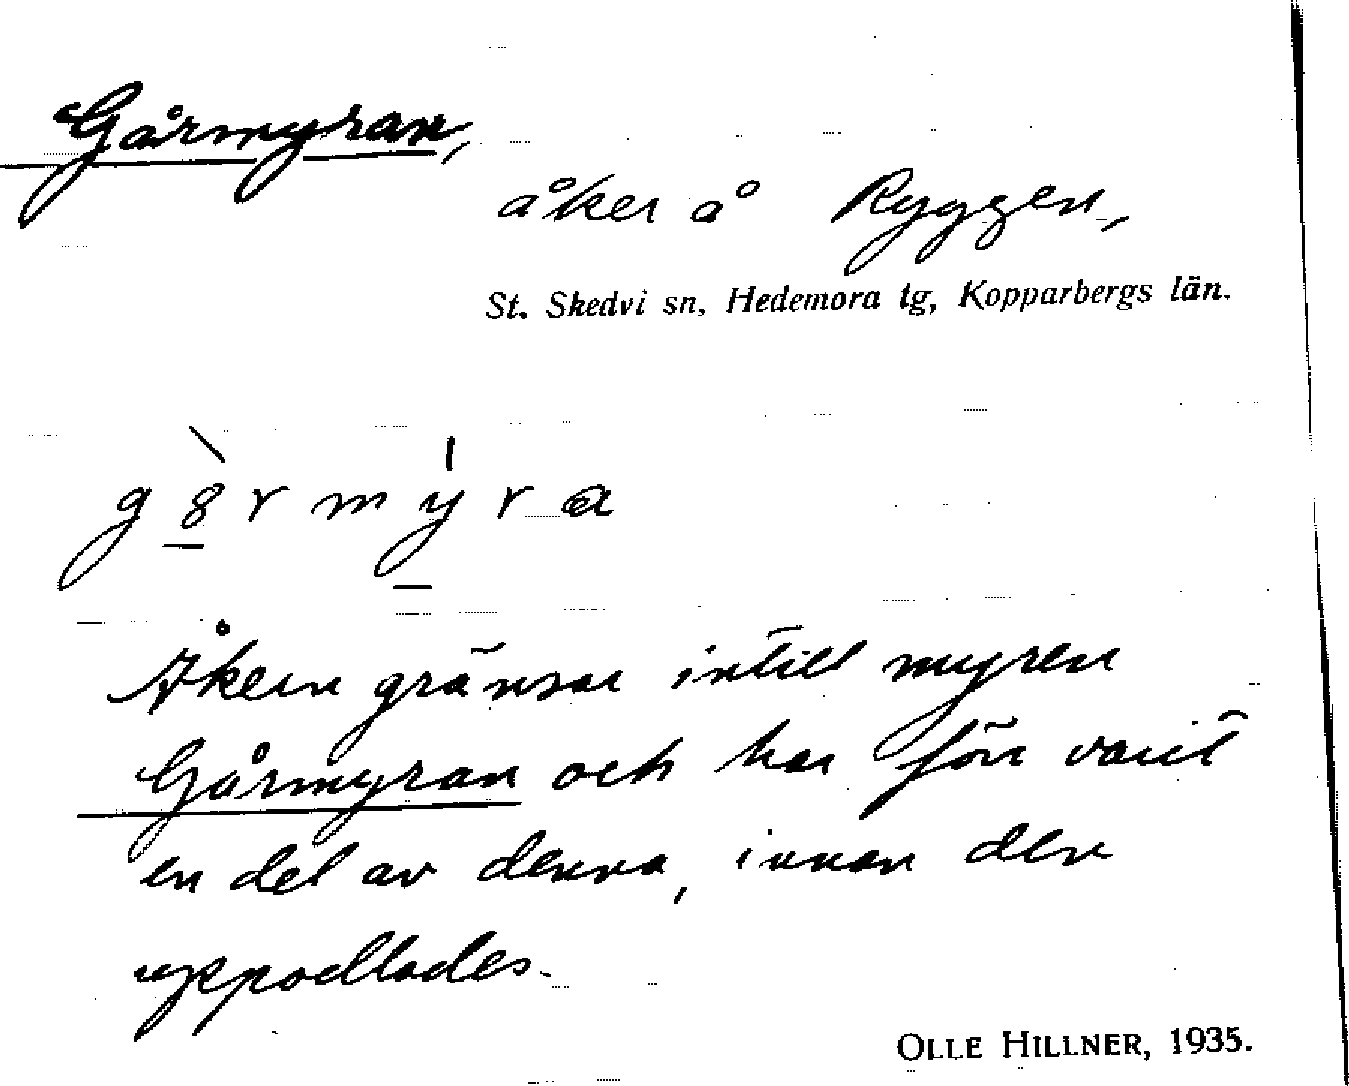 Gårmyran,
åker å Ryggen,
St. Skedvi sn, Hedemora tg, Kopparbergs län.
g8rmyra
Åkern gränsar intill myren
Gårmyran och har förr varit
en del av denna, innan den
uppodlades.
OLLE HILLNER, 1935.